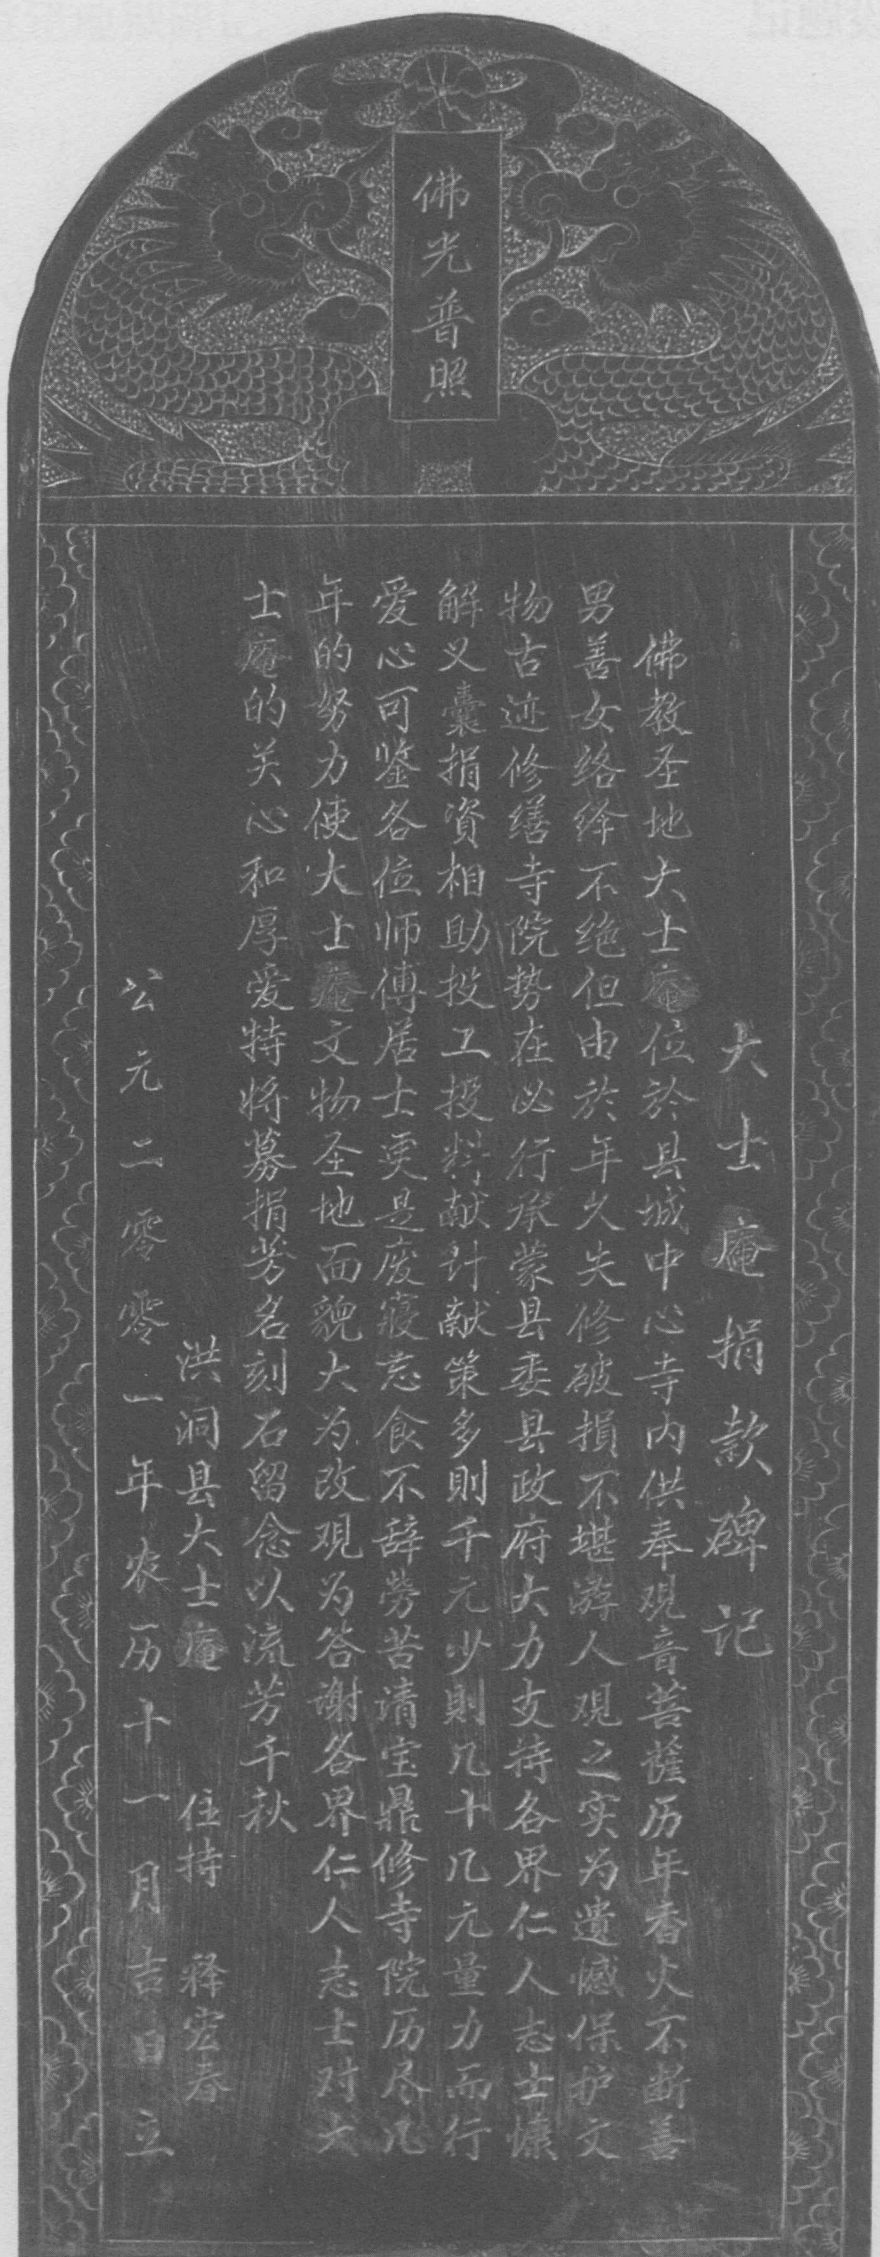 佛光普照
大士庵捐款碑记
佛教圣地大士庵位於县城中心寺内供奉观音菩萨历年香火不断善
男善女络绎不绝但由於年久失修破損不堪游人观之实为遗憾保护文
物古迹修缮寺院势在必行承蒙县委县政府大力支持各界仁人志士慷
解义囊捐資相助投工投料献计献策多則千元少則几十几元量力而行
爱心可鉴各位师傅居士更是废寝忘食不辞劳苦请宝鼎修寺院历尽几
年的努力使大士庵文物圣地面貌大为改观为答谢各界仁人志士对大
士庵的关心和厚爱特将募捐芳名刻石留念以流芳千秋
洪洞县大士庵 住持 释宏春
公元二零零一年农历十一月吉日立